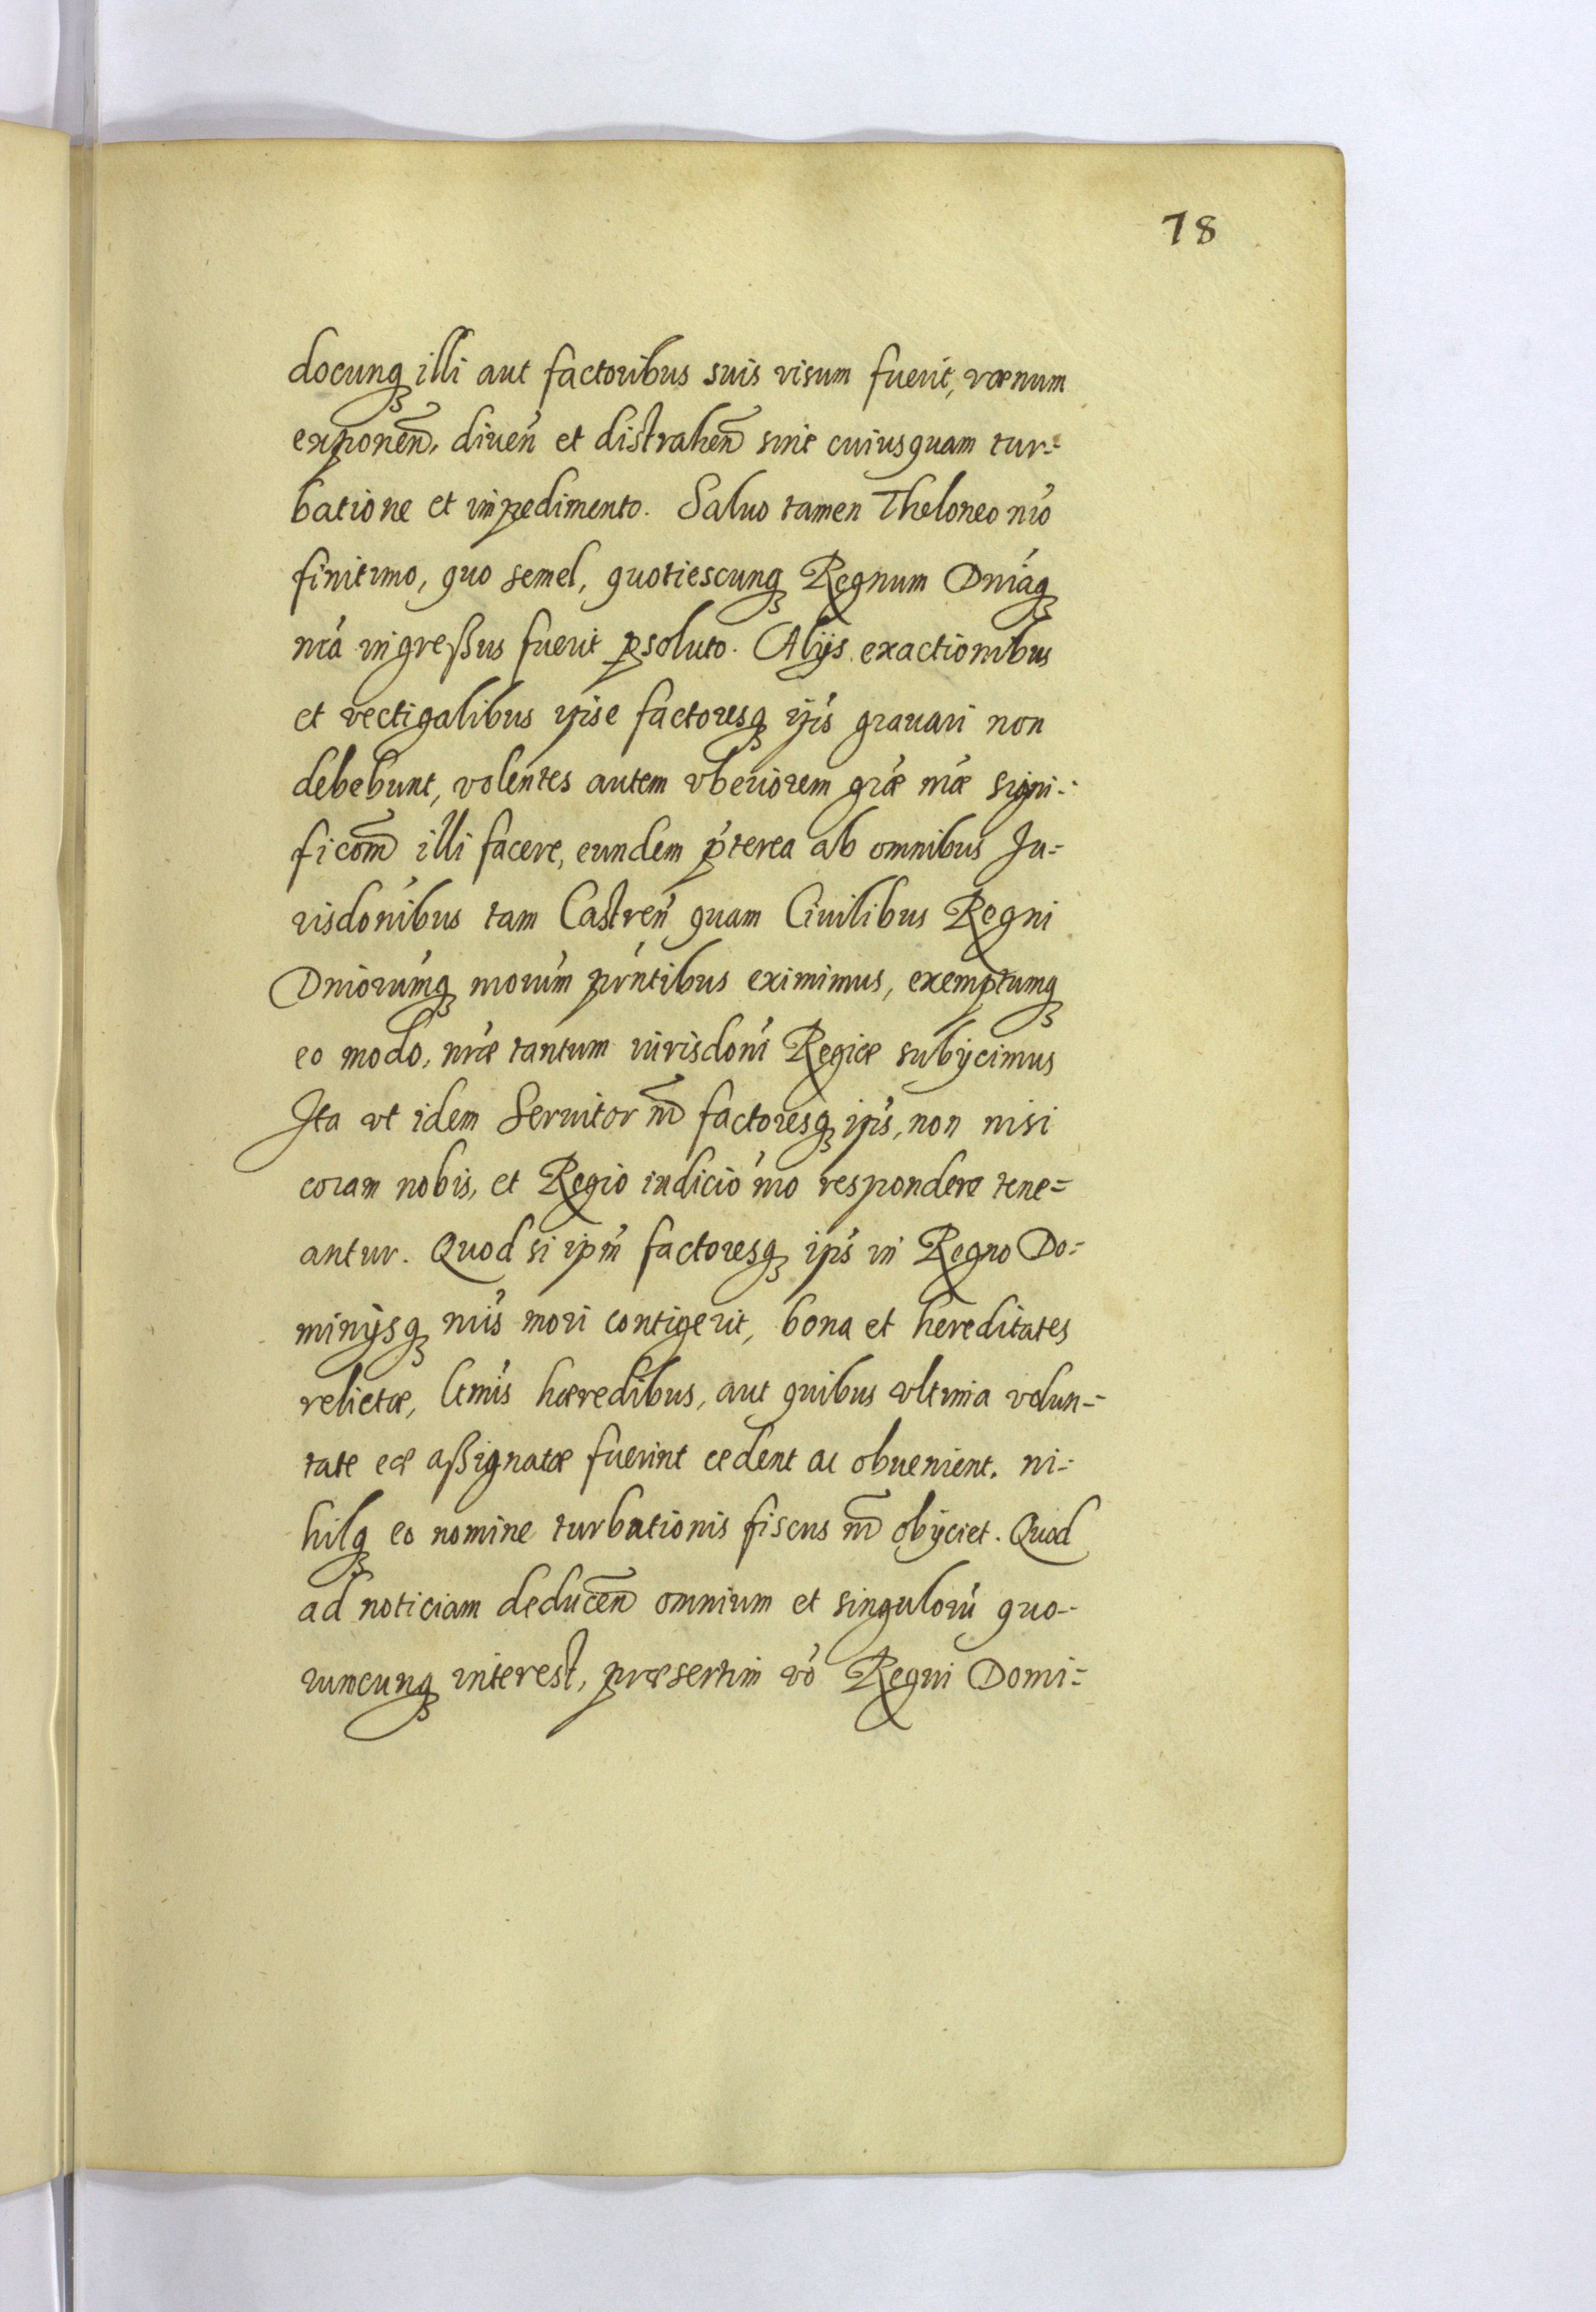 78
docunq illi aut factoribus suis visum fuerit, vænum
exponen̄, diven̄ et distrahen̄ sine cuiusquam tur=
batione et impedimento. Saluo tamen Theloneo nr̄o
finitimo, quo semel, quotiescunq Regnum Dn̄iaq
nr̄a ingreßus fuerit ꝑsoluto. Alijs exactionibus
et vectigalibus ipse factoresq ip̄s grauari non
debebunt, volentes autem vberiorem gr̄æ nr̄æ signi=
ficoēm illi facere, eundem p̄terea ab omnibus Ju=
risdon̄ibus tam Castren̄ quam Ciuilibus Regni
Dn̄iorumq nr̄orum pn̄tibus eximimus, exemptumq
eo modo, nr̄æ tantum iurisdon̄i Regiæ subijcimus
Ita vt idem Seruitor nr̄ factoresq ip̄s, non nisi
coram nobis, et Regio iudicio nr̄o respondere tene=
antur. Quod si ipm̄ factoresq ip̄s in Regno Do=
minijsq nr̄is mori contigerit, bona et hereditates
relictæ, ltm̄is hæredibus, aut quibus vltima volun=
tate eæ aßignatæ fuerint cedent ac obuenient. ni=
hilq eo nomine turbationis fiscus nr̄ obijciet. Quod
ad noticiam deducen̄ omnium et singulorū quo=
rumcunq interest, præsertim vō Regni Domi=